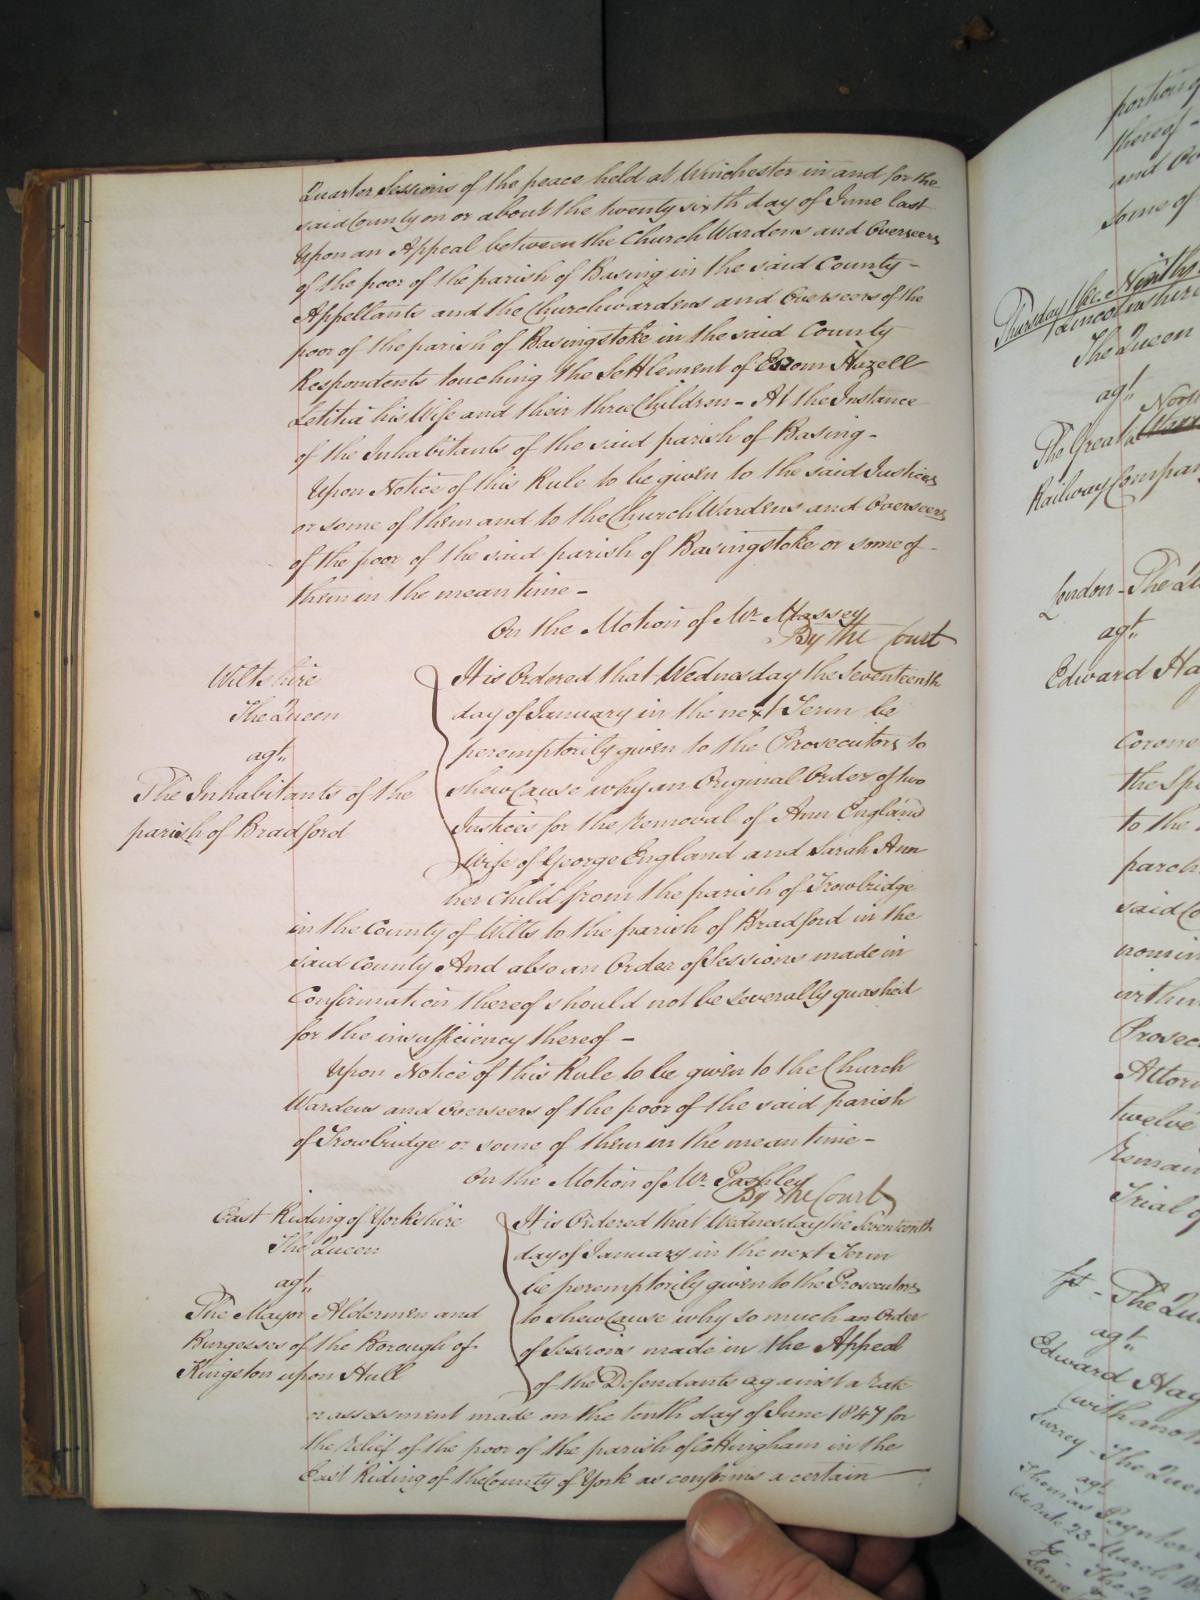 Quarter Sessions of the peace held at Winchester in and for the
said County on or about the twenty sixth day of June last
Upon an Appeal between the Church Wardens and Overseers
of the poor of the parish of Basing in the said County -
Appellants and the Churchwardens and Overseers of the
poor of the parish of Basingstoke in the said County
Respondents touching the Settlement of Hazell
Letitia his Wife and their three Children - At the Instance
of the Inhabitants of the said parish of Basing -
Upon Notice of this Rule to be given to the said Justices
or some of them and to the Church Wardens and Overseers
of the poor of the said parish of Basingstoke or some of
them in the mean time -
On the Motion of Mr. Massey
By the Court
Wiltshire
The Queen
agt.
The Inhabitants of the
parish of Bradford
It is Ordered that Wednesday the Seventeenth
day of January in the next Term be
peremptorily given to the Prosecutors to
shew Cause why an Original Order of two
Justices for the Removal of Ann England
Wife of George England and Sarah Ann
her Child from the parish of Trowbridge
in the County of Wilts to the parish of Bradford in the
said County And also an Order of Sessions made in
Confirmation thereof should not be severally quashed
for the insufficiency thereof -
Upon Notice of this Rule to be given to the Church
Wardens and Overseers of the poor of the said parish
of Trowbridge or some of them in the mean time -
On the Motion of Mr. Pashley
By the Court
East Riding of Yorkshire
The Queen
agt.
The Mayor Aldermen and
Burgesses of the Borough of
Kingston upon Hull
It is Ordered that Wednesday the Seventeenth
day of January in the next Term
be peremptorily given to the Prosecutors
to shew Cause why so much an Order
of Sessions made in the Appeal
of the Defendants against a rate
or assessment made on the tenth day of June 1847 for
the relief of the poor of the parish of Cottingham in the
East Riding of the County of York as confirms a certain
portion of
thereof -
and
some of
Thursday
Lincolnshire
The Queen
agt.
The Great
Railway Company
London - The
agt.
Edward
to the
twelve
Trial of
The
agt.
Edward
Surrey - The Queen
agt.
Thomas Paynter
23 March
The